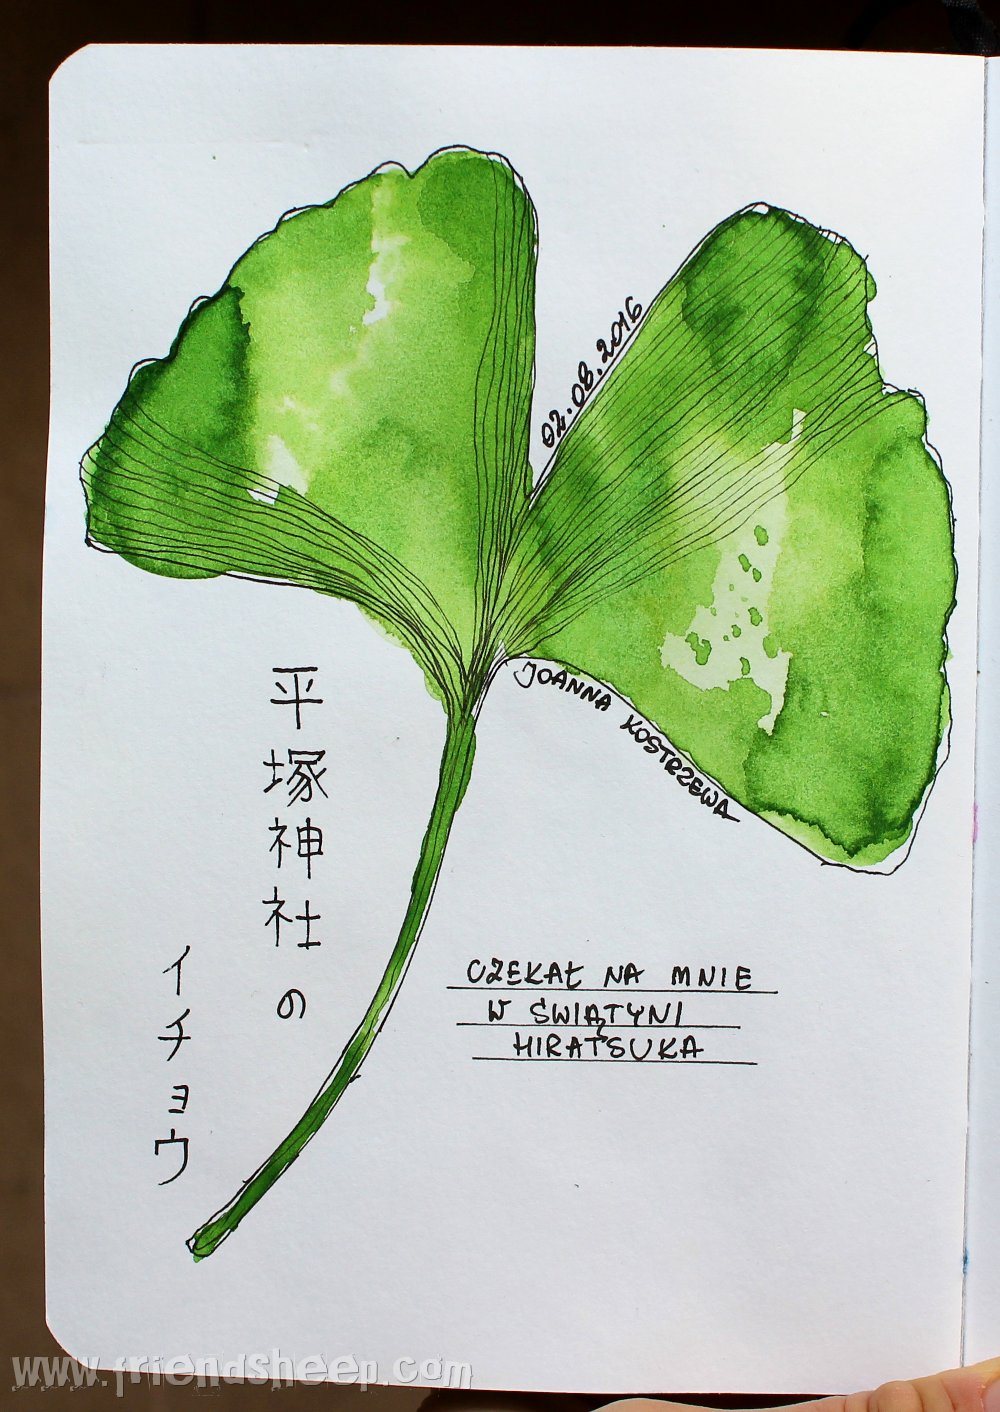 02.08.2016
JOANNA KOSTRZEWA
平塚神社の
イチョウ
CZEKAŁ NA MNIE
W ŚWIĄTYNI
HIRATSUKA
www.friendsheep.com